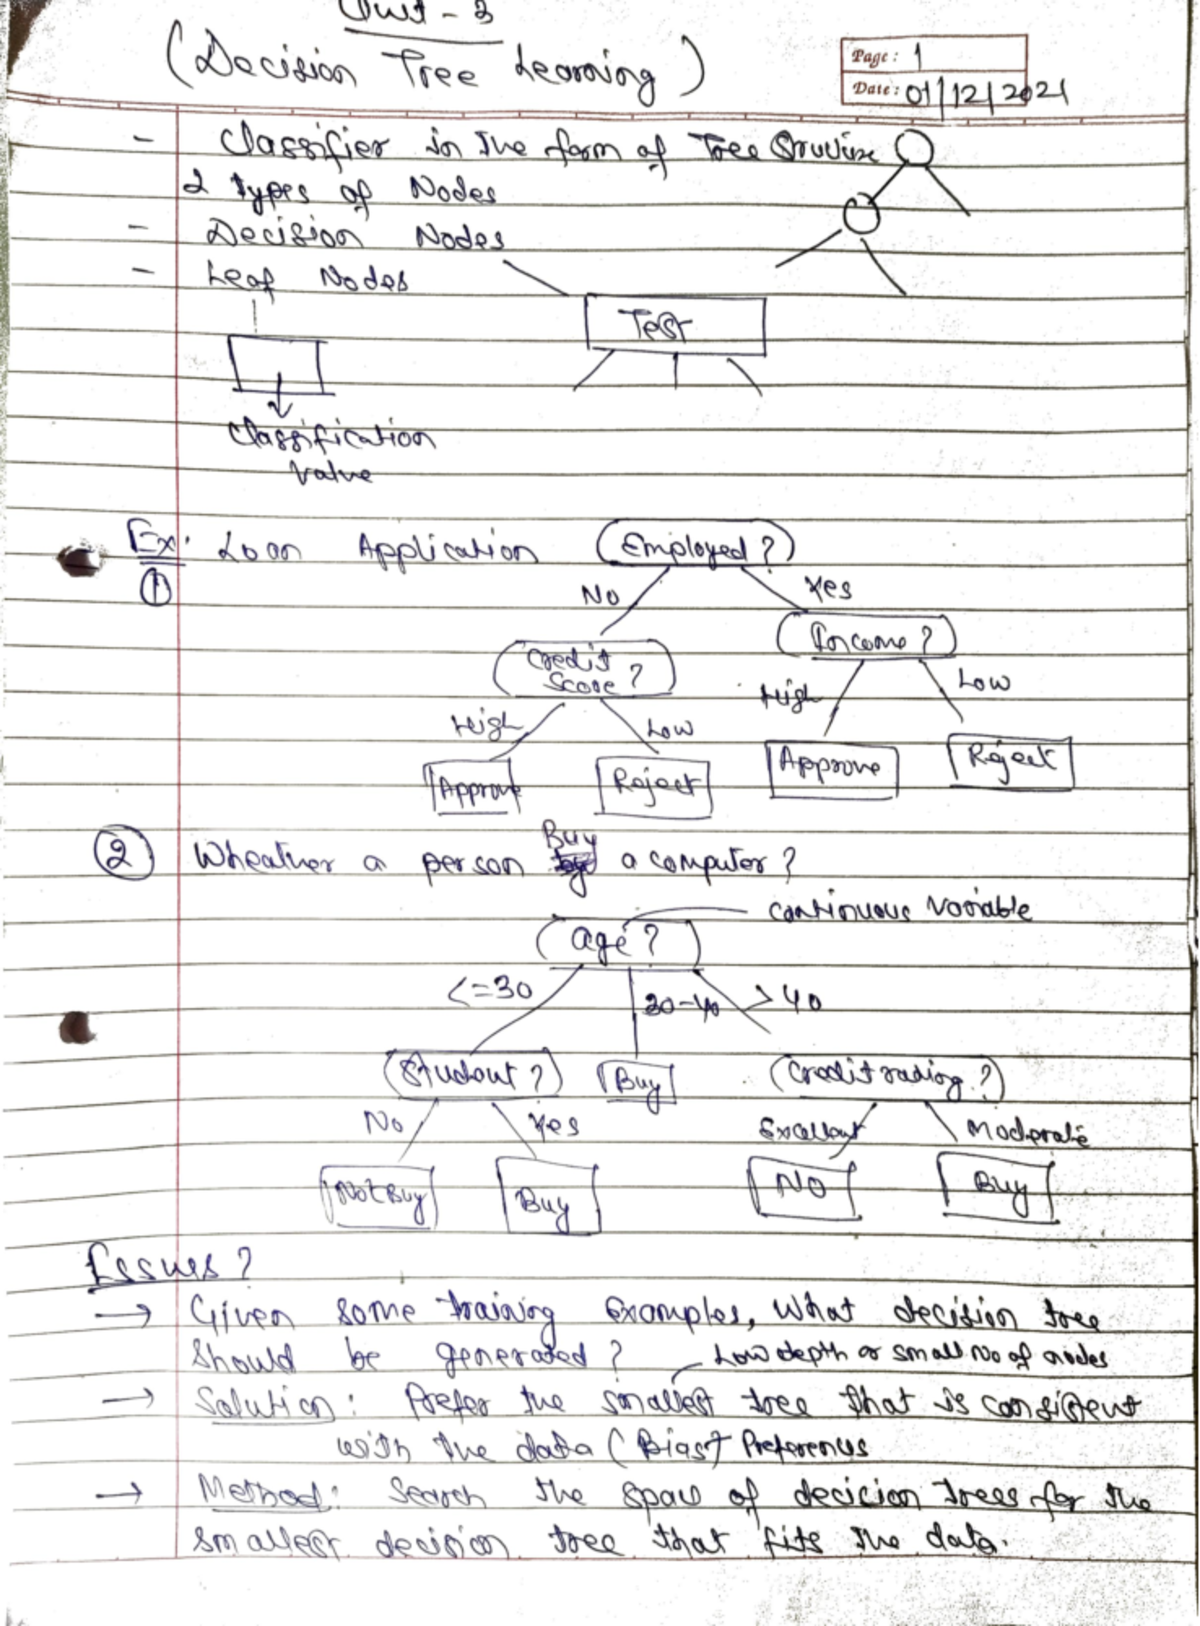 Unit - 3
(Decision Tree Learning)
Page: 1
Date: 01/12/2021
- Classifier in the form of Tree Structure
2 types of Nodes
- Decision Nodes
- Leaf Nodes
Test
Classification
Value
Ex: Loan Application
①
Employed?
No Yes
Credit Score?
Income?
High Low
High Low
Approve Reject Approve Reject
② Wheather a person Buy a computer?
continuous variable
age?
<=30 30-40 >40
Student? Buy Credit rading?
No Yes Excellent Moderate
Not Buy Buy NO Buy
Issues?
→ Given some training Examples, What decision tree
should be generated?
Low depth or small No of nodes
→ Solution: Prefer the smallest tree that is consistent
with the data (Bias) Preferences
→ Method: Search the space of decicion trees for the
smallest decision tree that fits the data.